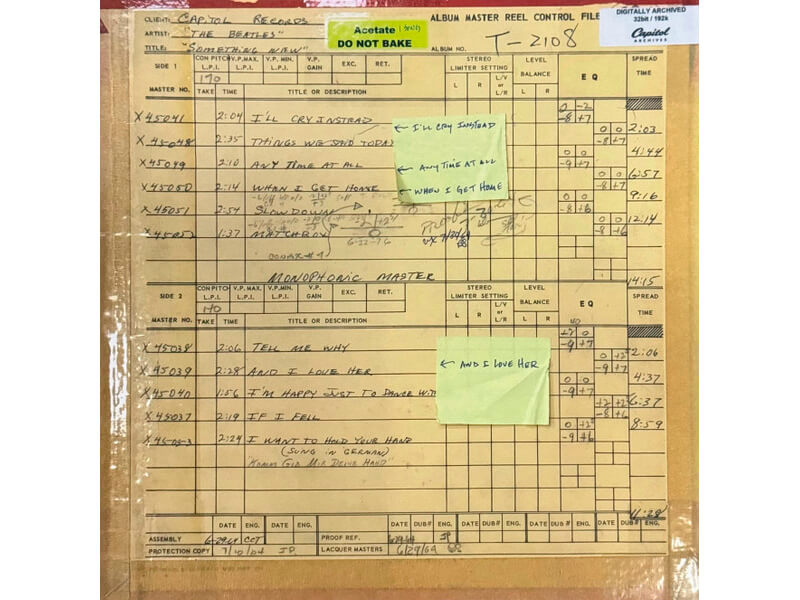 CLIENT: CAPITOL RECORDS
ARTIST: "THE BEATLES"
TITLE: "SOMETHING NEW"
Acetate
DO NOT BAKE
ALBUM MASTER REEL CONTROL FILE
ALBUM NO. T-2108
DIGITALLY ARCHIVED
32bit / 192k
Capitol
ARCHIVES
SIDE 1 CON PITCH L.P.I. V.P.MAX. L.P.I. V.P. MIN. L.P.I. V.P. GAIN EXC. RET. STEREO LIMITER SETTING LEVEL BALANCE EQ SPREAD TIME
170
MASTER NO. TAKE TIME TITLE OR DESCRIPTION L R L/V or L/R L R
0 -2
X 45041 2:04 I'LL CRY INSTEAD -8 +7
← I'LL CRY INSTEAD
0 0 2:03
X 45048 2:35 THINGS WE SAID TODAY -8 +7
0 0 4:44
X 45049 2:10 ANY TIME AT ALL ← ANY TIME AT ALL -9 +7
0 0 6:57
X 45050 2:14 WHEN I GET HOME ← WHEN I GET HOME -8 +7
0 0 9:16
X 45051 2:54 SLOW DOWN -8 +8
0 0 12:14
X 45052 1:37 MATCHBOX -8 +6
6-22-76
MONOPHONIC MASTER 14:15
SIDE 2 CON PITCH L.P.I. V.P.MAX. L.P.I. V.P. MIN. L.P.I. V.P. GAIN EXC. RET. STEREO LIMITER SETTING LEVEL BALANCE EQ SPREAD TIME
170
MASTER NO. TAKE TIME TITLE OR DESCRIPTION L R L/V or L/R L R
+2 0
X 45038 2:06 TELL ME WHY -9 +7
0 +2 2:06
X 45039 2:28 AND I LOVE HER ← AND I LOVE HER -8 +7
0 0 4:37
X 45040 1:56 I'M HAPPY JUST TO DANCE WIT -9 +7
+2 +2 6:37
X 45037 2:19 IF I FELL -8 +6
0 +2 8:59
2:24 I WANT TO HOLD YOUR HAND -9 +6
(SUNG IN GERMAN)
"KOMM GIB MIR DEINE HAND"
11:28
DATE ENG. DATE ENG. DATE ENG. DATE DUB# ENG. DATE DUB# ENG. DATE DUB# ENG. DATE DUB# ENG.
ASSEMBLY 6-29-64 CCT PROOF REF. 6/29/64 JP
PROTECTION COPY 7/10/64 JP LACQUER MASTERS 6/29/64